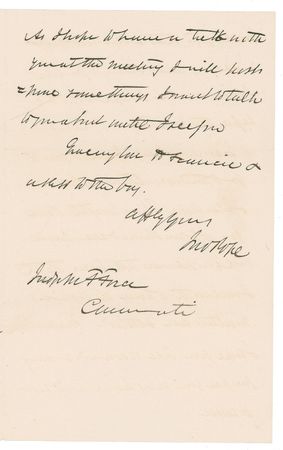 As I hope to have a talk with
you at the meeting I will post-
=pone some things I want to talk
to you about until I see you
Give my love to Francie &
a kiss to the boy.
affly Yours
Jno Pope
Judge M F Force
Cincinnati